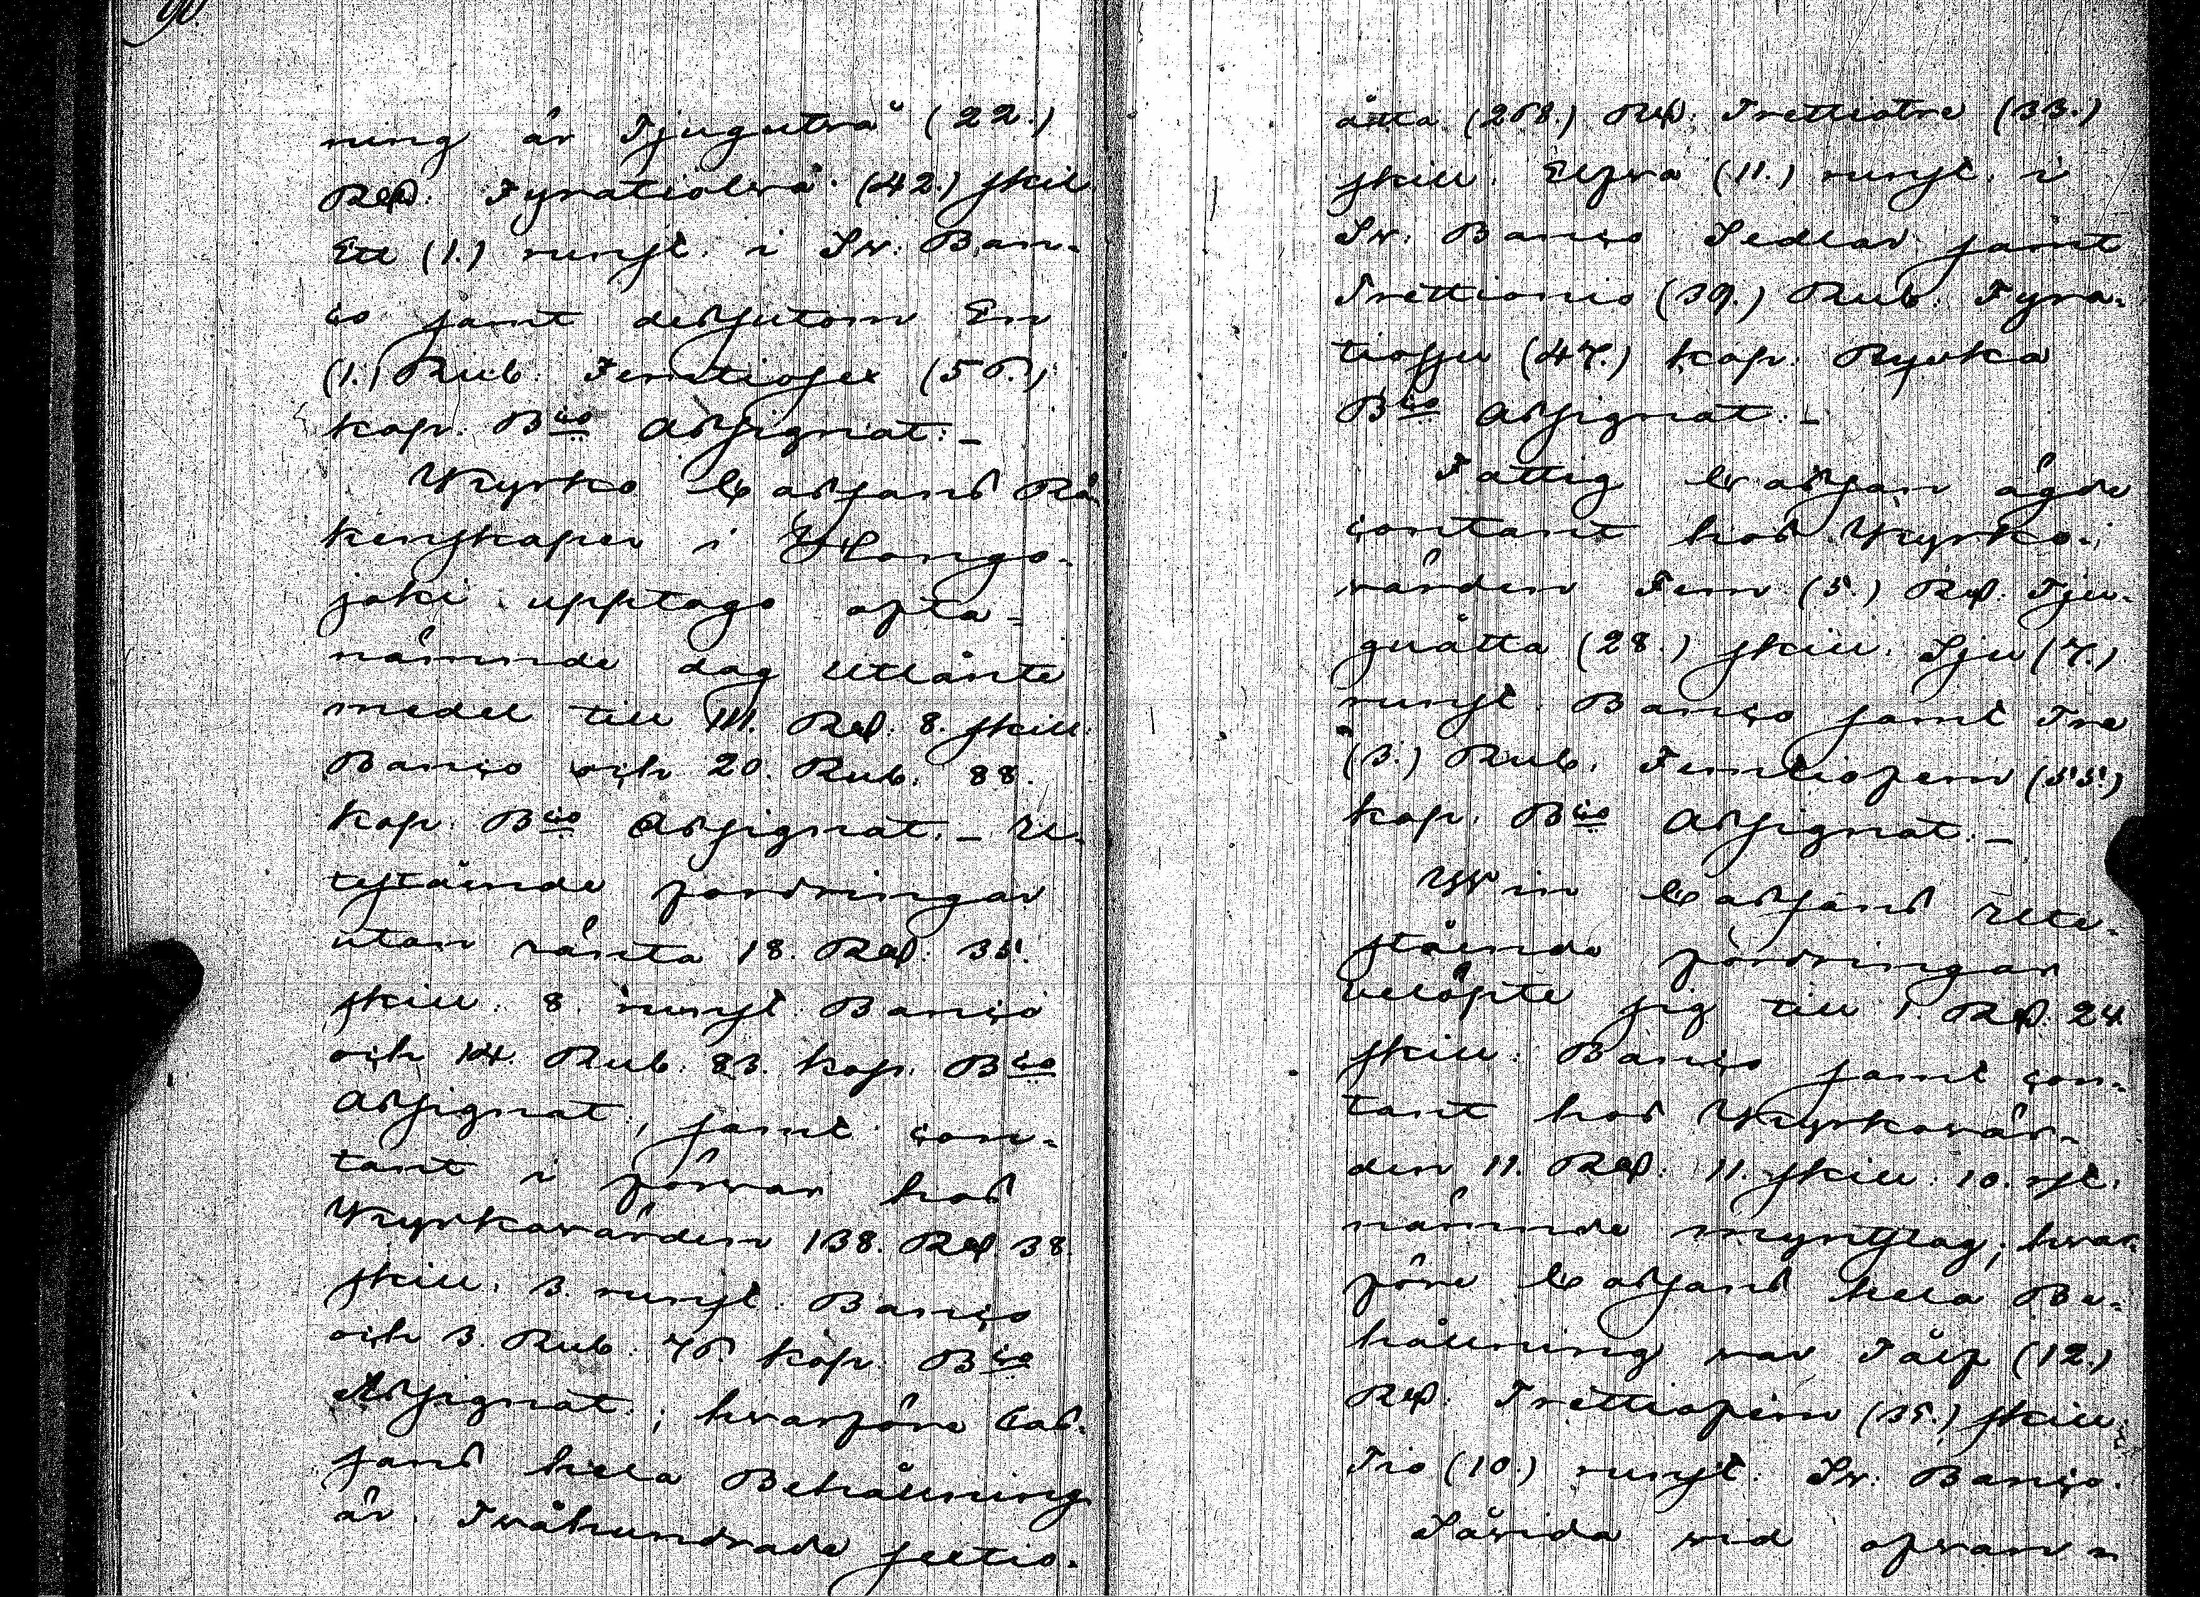 90.
ning är Tjugutvå (22.)
Rd. Fyratiotvå (42.) skill
Ett (1.) runst. i Sv. Ban-
co samt dessutom En
(1.) Rub. Femtiosex (56.)
kop. Bco Assignat. –
Kyrko Cassans Rä-
kenskaper i Hongo-
joki upptogo ofta-
nämnde dag utlånte
medel till 111. Rd. 8. skill.
Banco och 20. Rub. 88.
kop. Bco Assignat. – Ute-
stående fordringar
utan ränta 18. Rd. 35.
skill. 8. runst. Banco
och 14. Rub. 83. kop. Bco
Assignat, samt con-
tant i förvar hos
Kyrkovärden 138. Rd. 38.
skill. 3. runst. Banco
och 3. Rub. 76. kop. Bco
Assignat.; hvarföre Cas-
sans hela Behållning
är Tvåhundrade sextio-
åtta (268.) Rd. Trettiotre (33.)
skill. Elfva (11.) runst. i
Sv. Banco Sedlar samt
Trettionio (39.) Rub. Fyra-
tiosju (47.) kop. Ryska
Bco Assignat. –
Fattig Cassan ägde
contant hos Kyrko-
värden Fem (5.) Rd. Tju-
guåtta (28.) skill. Sju (7.)
runst. Banco samt Tre
(3.) Rub. Femtiofem (55.)
kop. Bco Assignat. –
Win Cassans Ute-
stående fordringar
belöpte sig till 1. Rd. 24
skill. Banco samt con-
tant hos Kyrkovär-
den 11. Rd. 11. skill. 10. rst.
nämnde myntslag; hvar-
före Cassans hela Be-
hållning var Tolf (12.)
Rd. Trettiofem (35.) skill.
Tio (10.) runst. Sv. Banco.
Såvida vid ofvan-